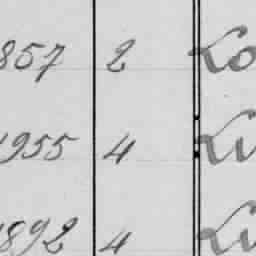 857 2 Lo
1955 4 Li
1892 4 Li